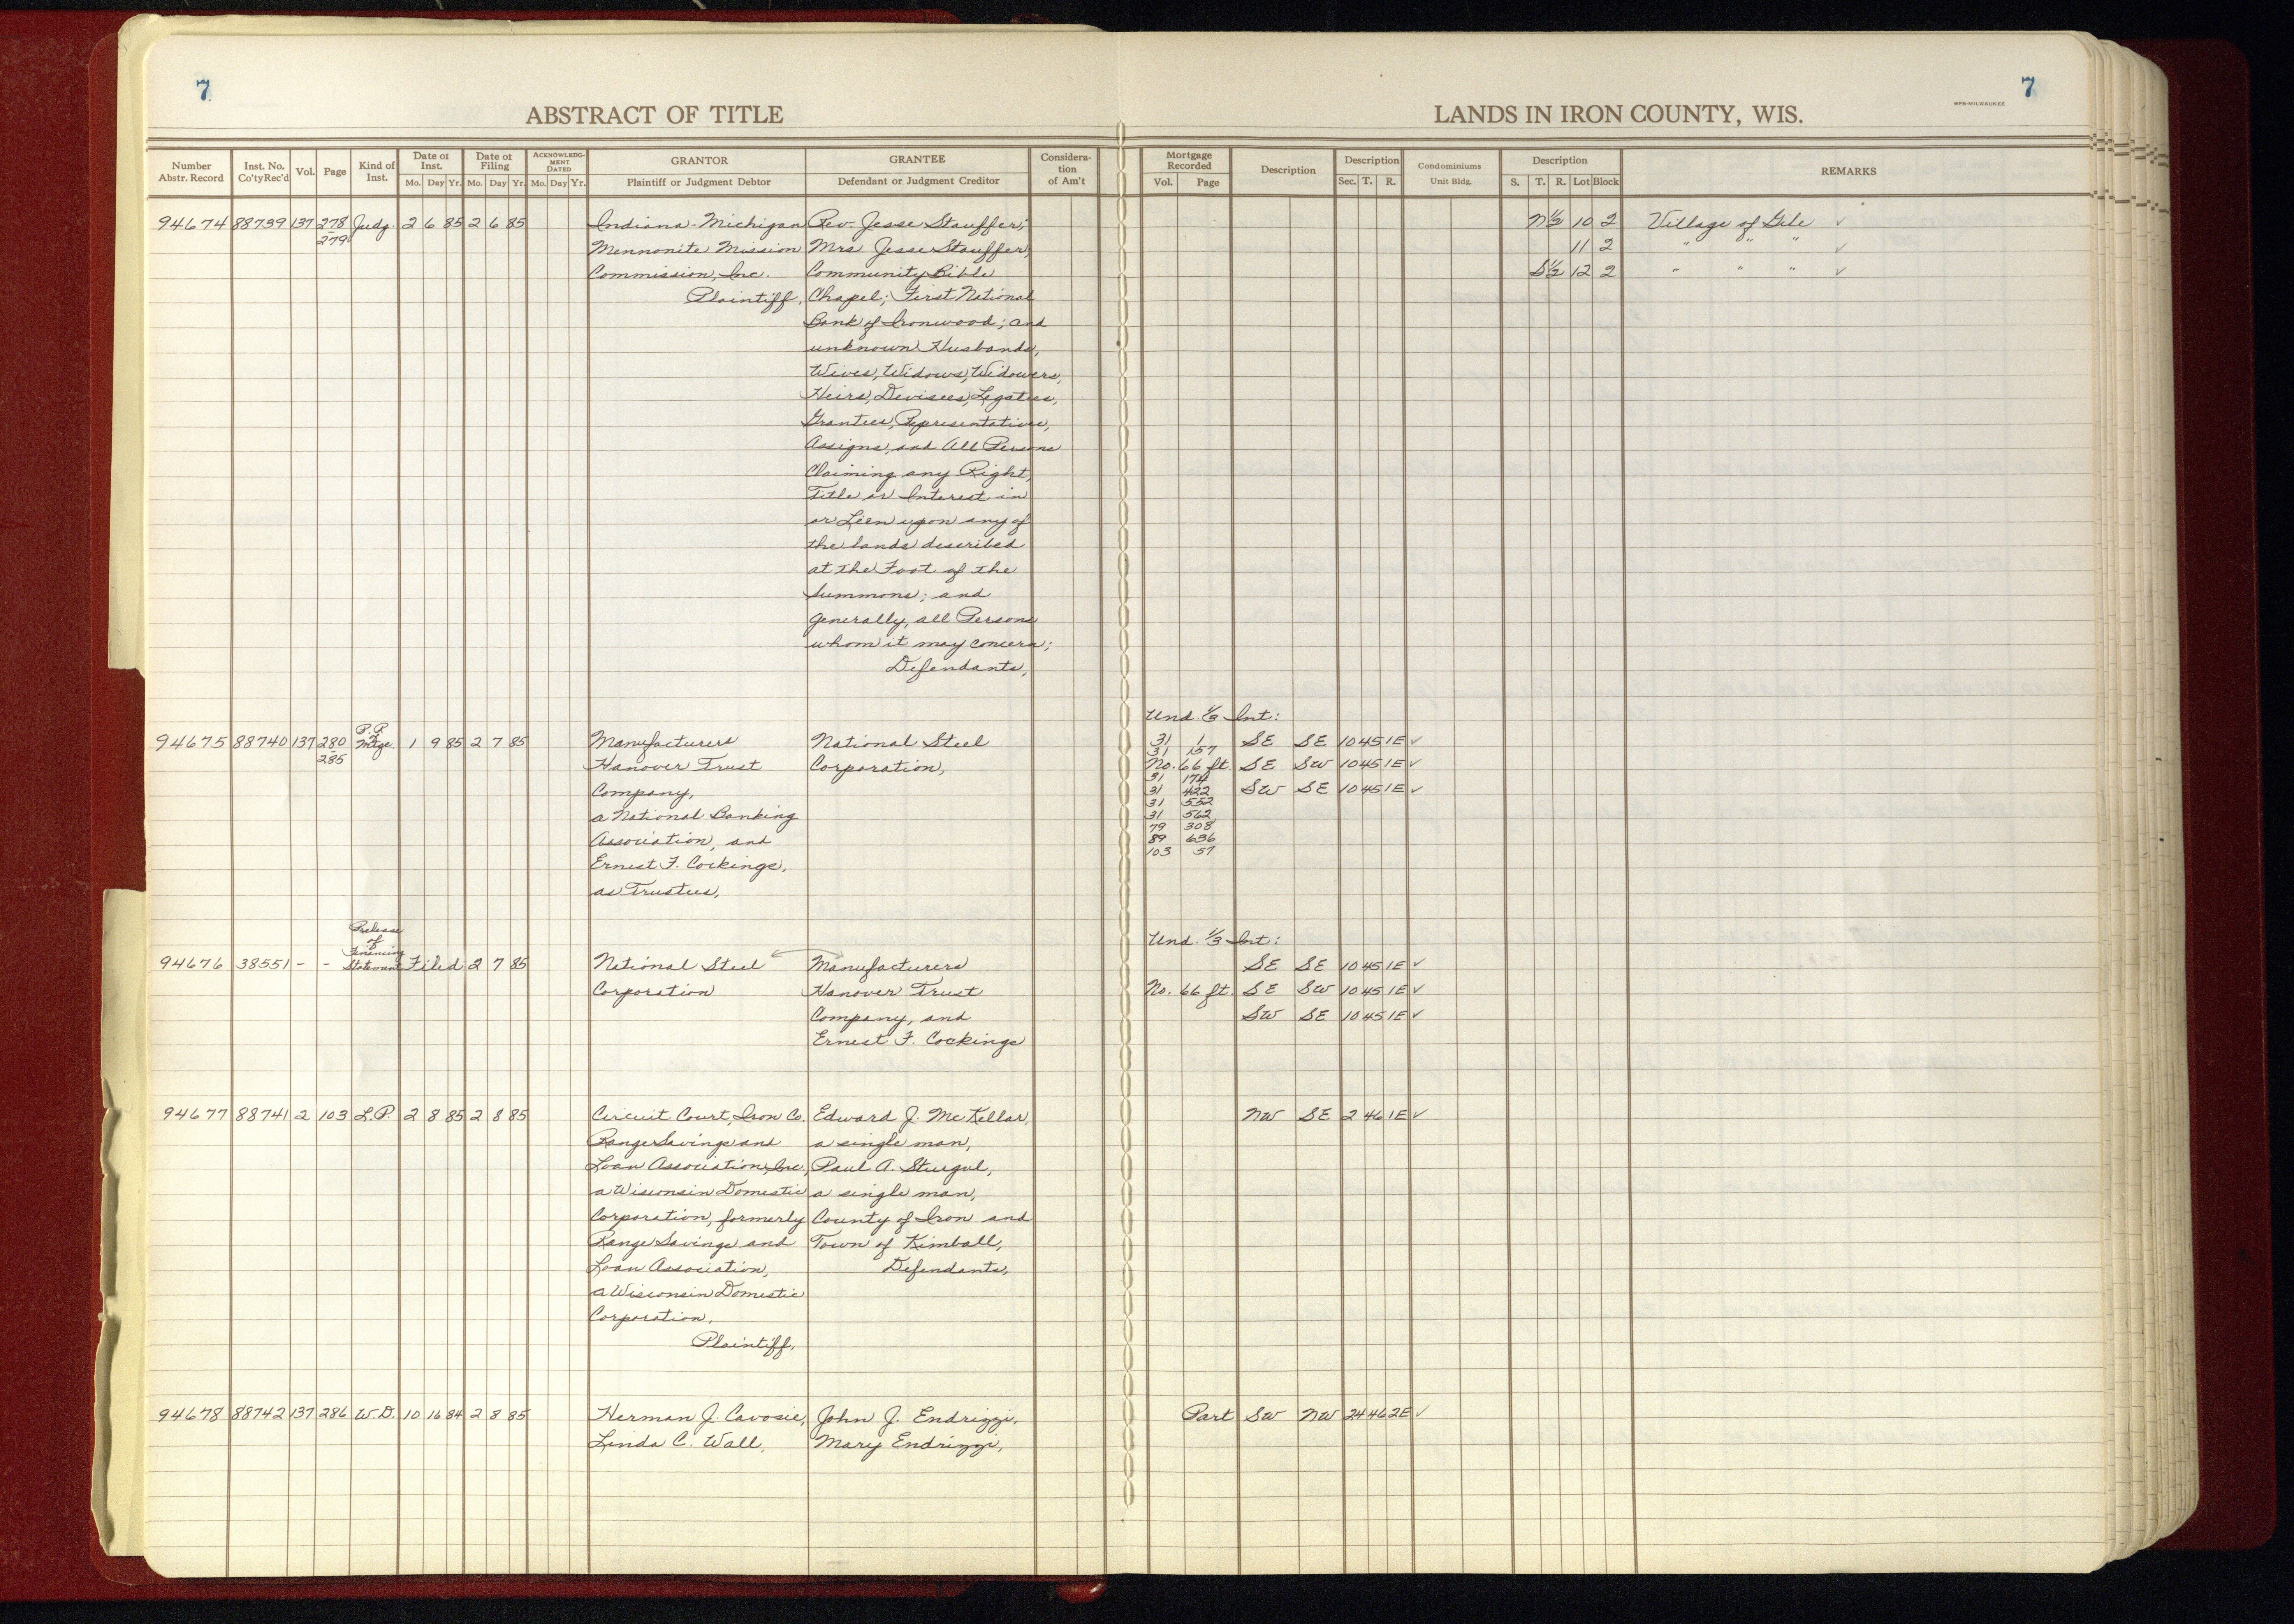 7
7
WPB-MILWAUKEE
ABSTRACT OF TITLE
LANDS IN IRON COUNTY, WIS.
Number Abstr. Record | Inst. No. Co'ty Rec'd | Vol. | Page | Kind of Inst. | Date of Inst. Mo. Day Yr. | Date of Filing Mo. Day Yr. | ACKNOWLEDGMENT DATED Mo. Day Yr. | GRANTOR Plaintiff or Judgment Debtor | GRANTEE Defendant or Judgment Creditor | Consideration of Am't | Mortgage Recorded Vol. Page | Description | Description Sec. T. R. | Condominiums Unit Bldg. | Description S. T. R. Lot Block | REMARKS
94674 88739 137 278 Judg. 2 6 85 2 6 85 Indiana-Michigan Rev. Jesse Stauffer; N½ 10 2 Village of Gile ✓
279 Mennonite Mission Mrs Jesse Stauffer; 11 2 " " " ✓
Commission, Inc. Community Bible S½ 12 2 " " " ✓
Plaintiff, Chapel; First National
Bank of Ironwood; and
unknown Husbands,
Wives, Widows, Widowers,
Heirs, Devisees, Legatees,
Grantees, Representatives,
Assigns, and All Persons
Claiming any Right,
Title or Interest in
or Lien upon any of
the Lands described
at the Foot of the
Summons; and
generally, all Persons
whom it may concern;
Defendants,
Und. ⅓ Int:
94675 88740 137 280 P.R. of Mtge. 1 9 85 2 7 85 Manufacturers National Steel 31 1 SE SE 10 45 1E ✓
285 31 157
Hanover Trust Corporation, No. 66 ft. SE SW 10 45 1E ✓
31 174
Company, 31 422 SW SE 10 45 1E ✓
31 552
a National Banking 31 562
79 308
Association, and 89 636
103 57
Ernest F. Cockings,
as Trustees,
Release of Financing Statement
Und. ⅓ Int:
94676 38551 - - Filed 2 7 85 National Steel Manufacturers SE SE 10 45 1E ✓
Corporation Hanover Trust No. 66 ft. SE SW 10 45 1E ✓
Company, and SW SE 10 45 1E ✓
Ernest F. Cockings
94677 88741 2 103 L.P. 2 8 85 2 8 85 Circuit Court, Iron Co. Edward J. McKellar, NW SE 2 46 1E ✓
Range Savings and a single man,
Loan Association, Inc., Paul A. Sturgul,
a Wisconsin Domestic a single man,
Corporation, formerly County of Iron and
Range Savings and Town of Kimball,
Loan Association, Defendants,
a Wisconsin Domestic
Corporation,
Plaintiff,
94678 88742 137 286 W.D. 10 16 84 2 8 85 Herman J. Cavosie, John J. Endrizzi, Part SW NW 24 46 2E ✓
Linda C. Wall, Mary Endrizzi,